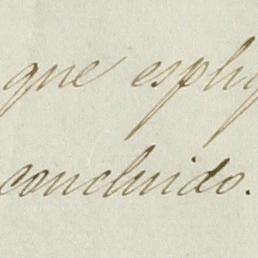 que espliq
concluido.